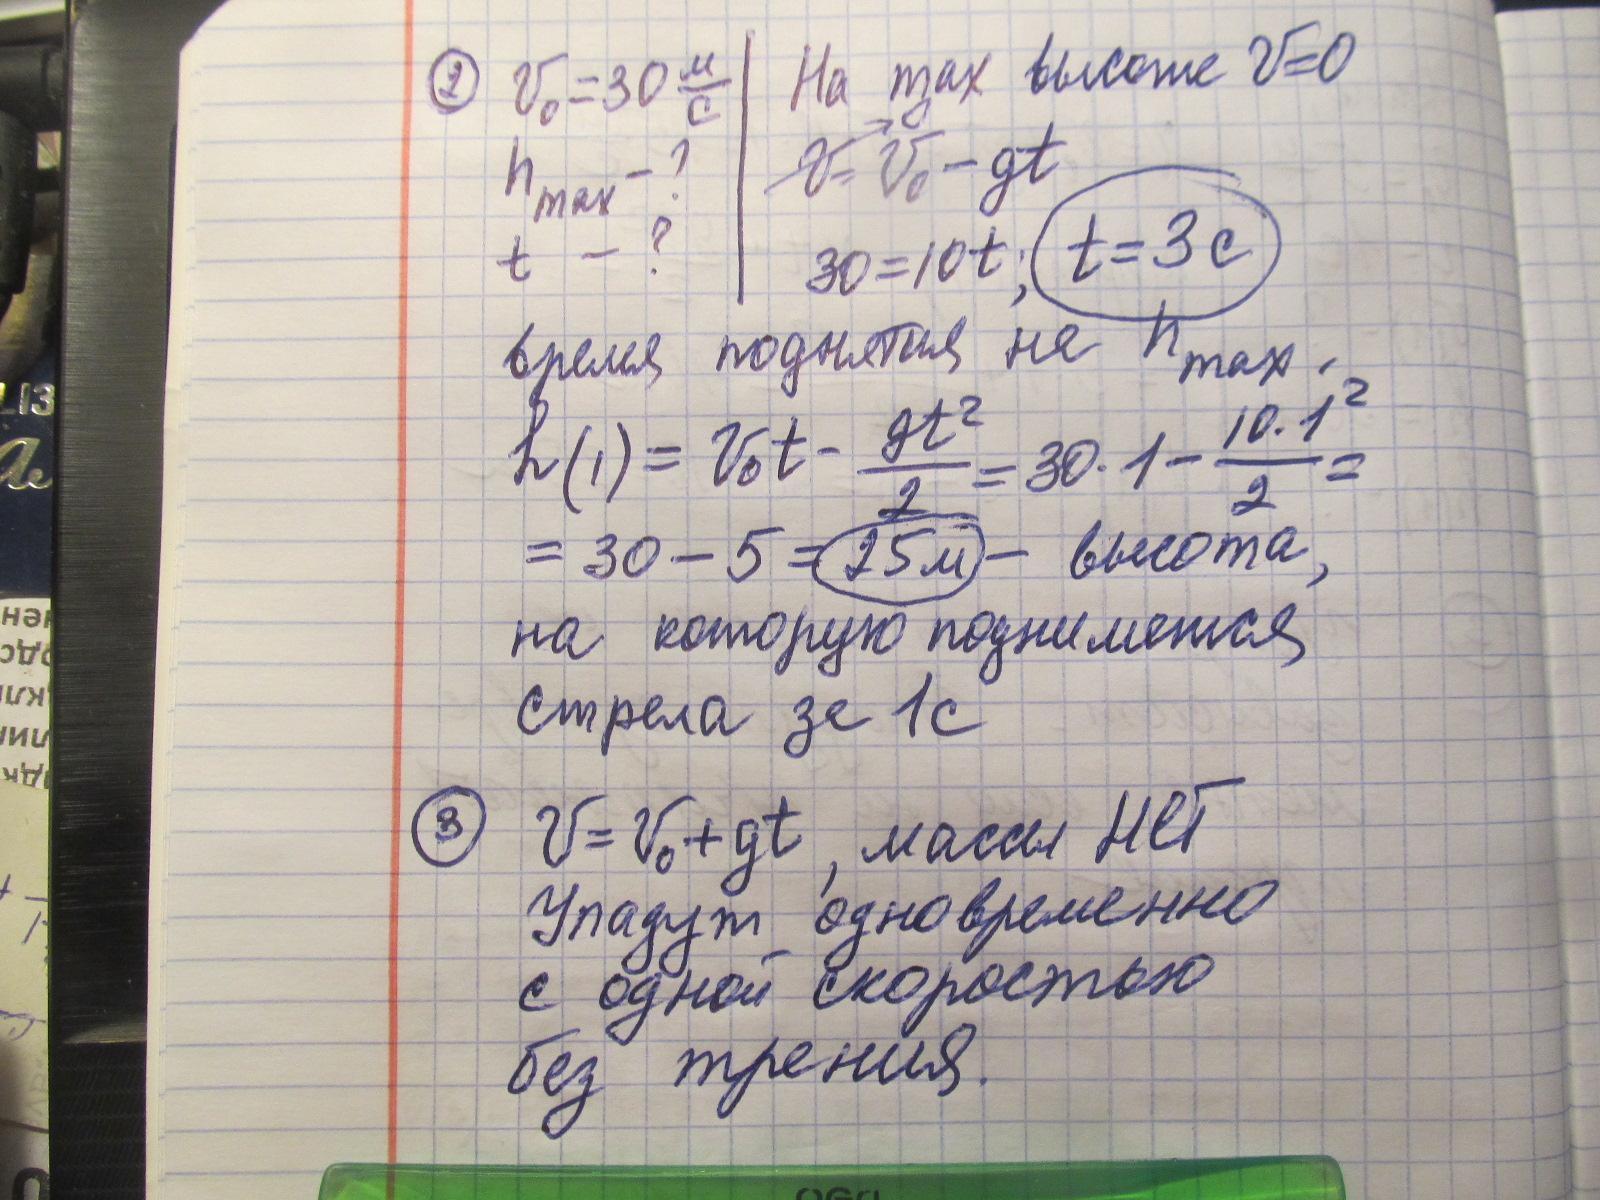 2 V₀ = 30 м/с | На max высоте V=0
h max - ? | V = V₀ - gt
0
t - ? | 30 = 10t; t = 3с
время поднятия на h max.
h(1) = V₀t - gt²/2 = 30·1 - 10·1²/2 =
= 30 - 5 = 25м - высота,
на которую поднимется
стрела за 1с
3 V = V₀ + gt, массы НЕТ
Упадут одновременно
с одной скоростью
без трения.